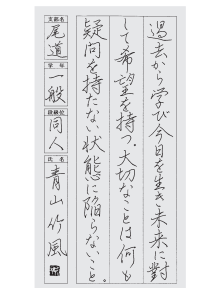 過去から学び今日を生き未来に對
して希望を持つ。大切なことは何も
疑問を持たない状態に陥らないこと。
支部名
尾道
学年
一般
段級位
同人
氏名
青山竹風